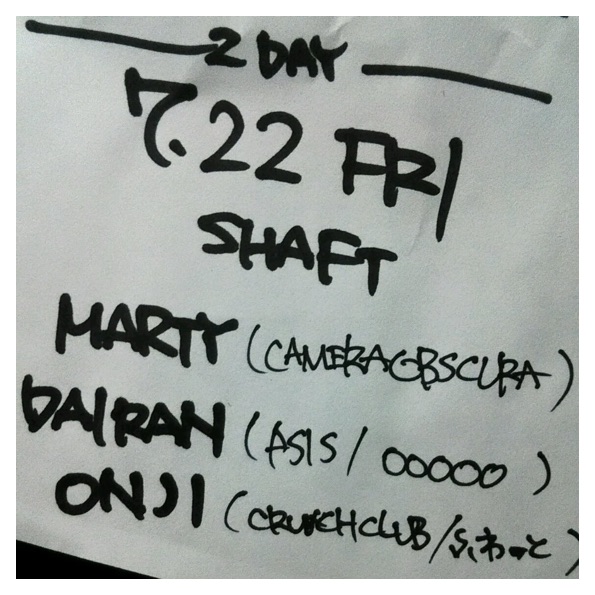 2 DAY
7.22 FRI
SHAFT
MARTY (CAMERAOBSCURA)
DAIRAN (ASIS / OOOOO )
ONJI (CRUNCHCLUB/ふわっと)